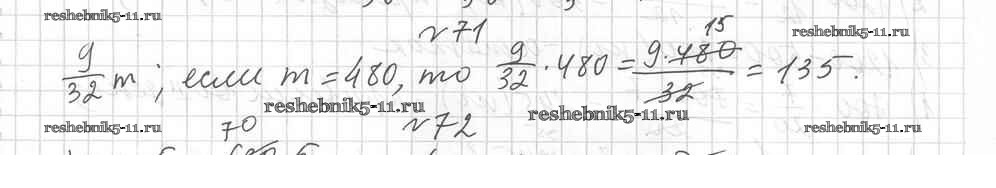 reshebnik5-11.ru
№71
reshebnik5-11.ru
9/32 m; если m = 480, то 9/32 · 480 = 9·480/32 = 135.
15
reshebnik5-11.ru
reshebnik5-11.ru
reshebnik5-11.ru
70
№72
reshebnik5-11.ru